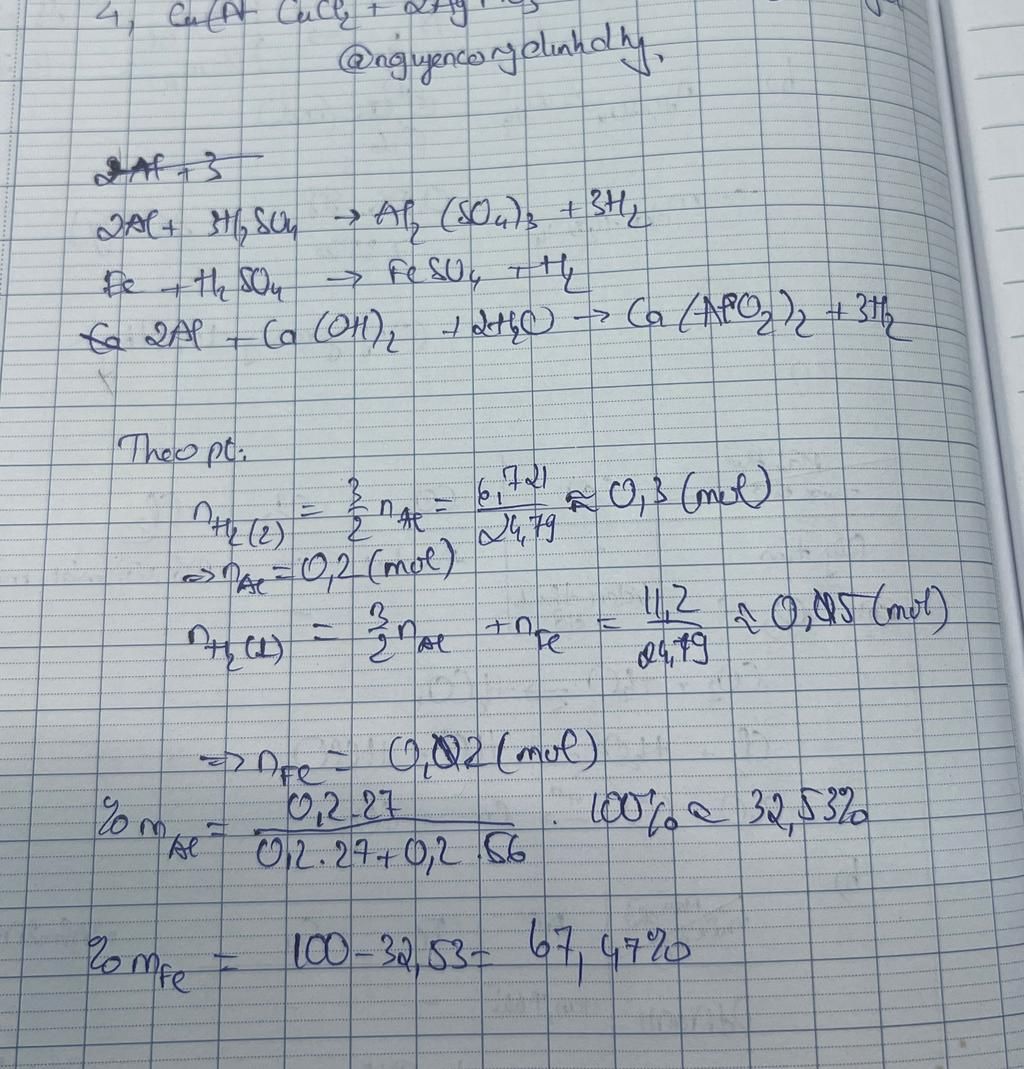 4, Cu(A CuCl₂ + 2Ag
@nguyencongdinhdhy.
2Al + 3
2Al + 3H₂SO₄ → Al₂(SO₄)₃ + 3H₂
Fe + H₂SO₄ → FeSO₄ + H₂
Ca 2Al + Ca(OH)₂ + 2H₂O → Ca(AlO₂)₂ + 3H₂
Theo pt:
nH₂(2) = 3/2 nAl = 6,721/24,79 ≈ 0,3 (mol)
⇒ nAl = 0,2 (mol)
nH₂(1) = 3/2 nAl + nFe = 11,2/24,79 ≈ 0,5 (mol)
⇒ nFe = 0,2 (mol)
%mAl = 0,2.27/0,2.27+0,2.56 . 100% ≈ 32,53%
%mFe = 100-32,53= 67,47%